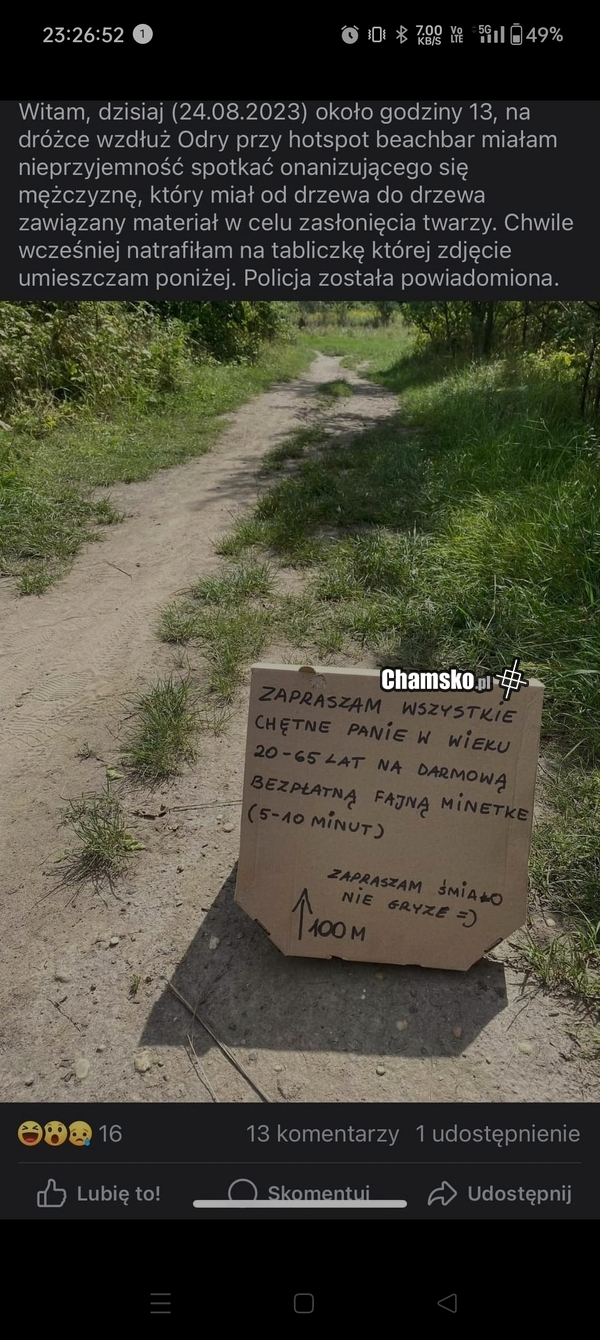 23:26:52 1 7.00 KB/S Vo LTE 5G 49%
Witam, dzisiaj (24.08.2023) około godziny 13, na
dróżce wzdłuż Odry przy hotspot beachbar miałam
nieprzyjemność spotkać onanizującego się
mężczyznę, który miał od drzewa do drzewa
zawiązany materiał w celu zasłonięcia twarzy. Chwile
wcześniej natrafiłam na tabliczkę której zdjęcie
umieszczam poniżej. Policja została powiadomiona.
Chamsko.pl
ZAPRASZAM WSZYSTKIE
CHĘTNE PANIE W WIEKU
20-65 LAT NA DARMOWĄ
BEZPŁATNĄ FAJNĄ MINETKE
(5-10 MINUT)
ZAPRASZAM ŚMIAŁO
NIE GRYZĘ =)
100M
16 13 komentarzy 1 udostępnienie
Lubię to! Skomentuj Udostępnij